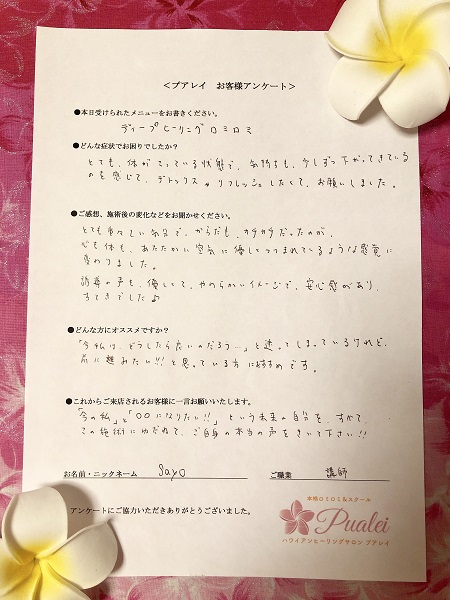 <プアレイ お客様アンケート>
●本日受けられたメニューをお書きください。
ディープヒーリングロミロミ
●どんな症状でお困りでしたか?
とても、体がこっている状態で、気持ちも、少しずつ下がってきている
のを感じて、デトックス、リフレッシュしたくて、お願いしました。
●ご感想、施術後の変化などをお聞かせください。
とても 気分で、からだも、カチカチだったのが、
心も体も、あたたかい空気に優しくつつまれているような感覚に
変わりました。
誘導の声も、優しくて、やわらかいイメージで、安心感があり、
すてきでした♪
●どんな方にオススメですか?
「今、私は、どうしたら良いのだろう…」と迷ってしまっているけれど、
前に進みたい!!と思っている方におすすめです。
●これからご来店されるお客様に一言お願いいたします。
「今の私」と「〇〇になりたい!!」という未来の自分を、すべて、
この施術にゆだねて、ご自身の本当の声をきいて下さい!!
お名前・ニックネーム sayo ご職業 講師
アンケートにご協力いただきありがとうございました。
本格ロミロミ&スクール
Pualei
ハワイアンヒーリングサロン プアレイ